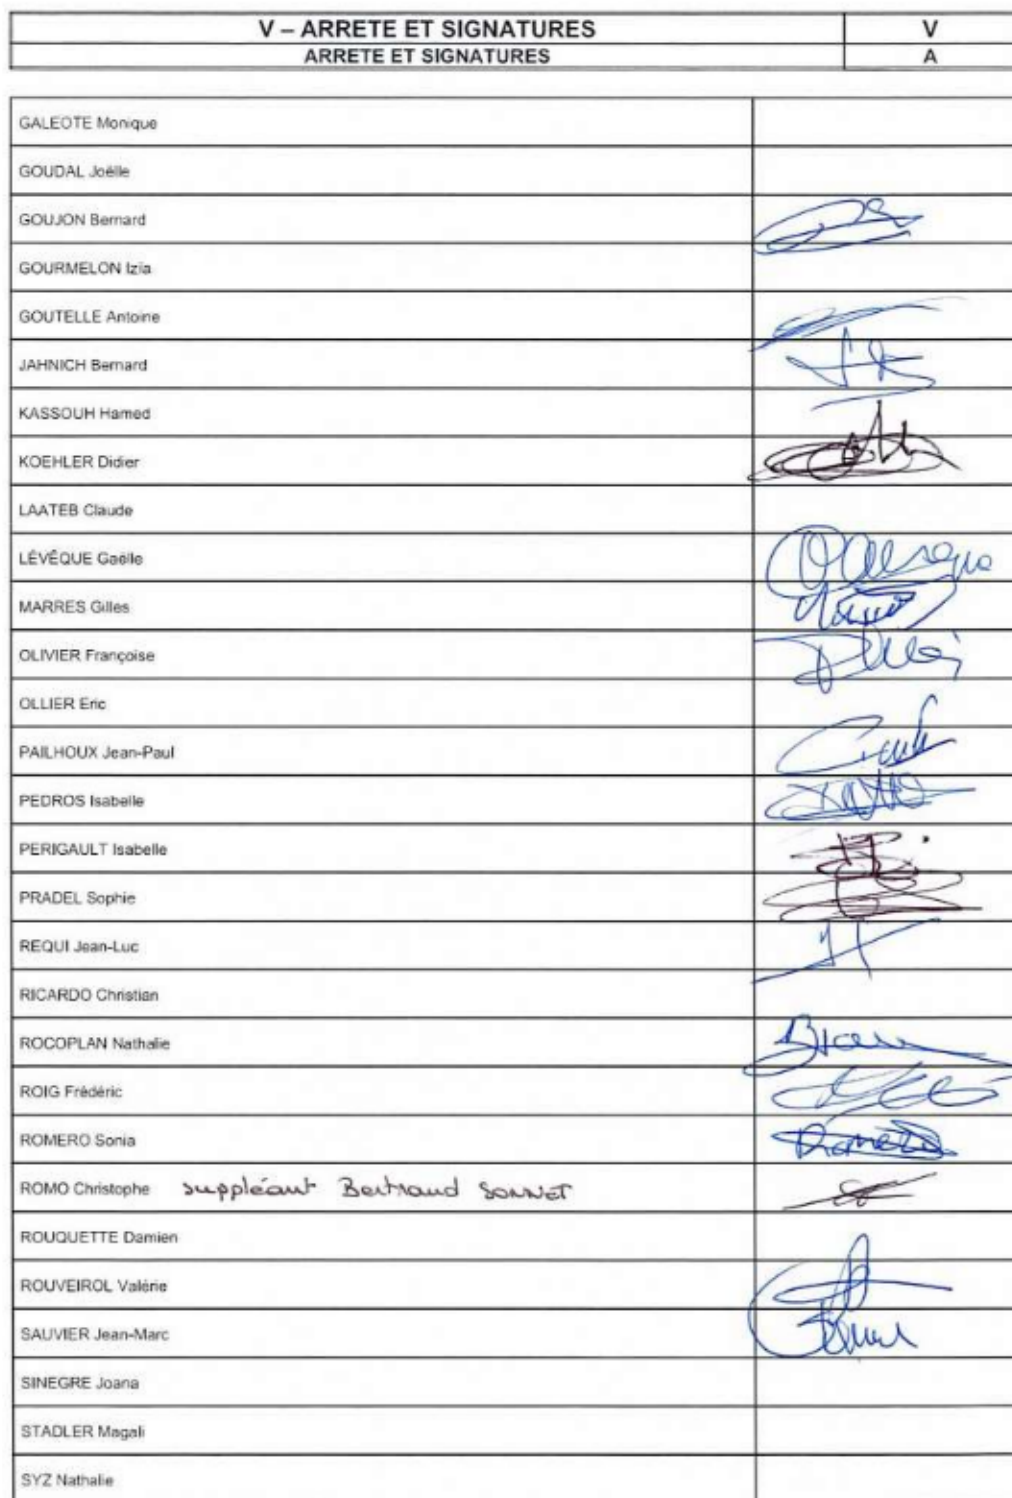 V – ARRETE ET SIGNATURES V
ARRETE ET SIGNATURES A
GALEOTE Monique
GOUDAL Joëlle
GOUJON Bernard
GOURMELON Izïa
GOUTELLE Antoine
JAHNICH Bernard
KASSOUH Hamed
KOEHLER Didier
LAATEB Claude
LÉVÊQUE Gaëlle
MARRES Gilles
OLIVIER Françoise
OLLIER Eric
PAILHOUX Jean-Paul
PEDROS Isabelle
PERIGAULT Isabelle
PRADEL Sophie
REQUI Jean-Luc
RICARDO Christian
ROCOPLAN Nathalie
ROIG Frédéric
ROMERO Sonia
ROMO Christophe suppléant Bertrand SONNET
ROUQUETTE Damien
ROUVEIROL Valérie
SAUVIER Jean-Marc
SINEGRE Joana
STADLER Magali
SYZ Nathalie